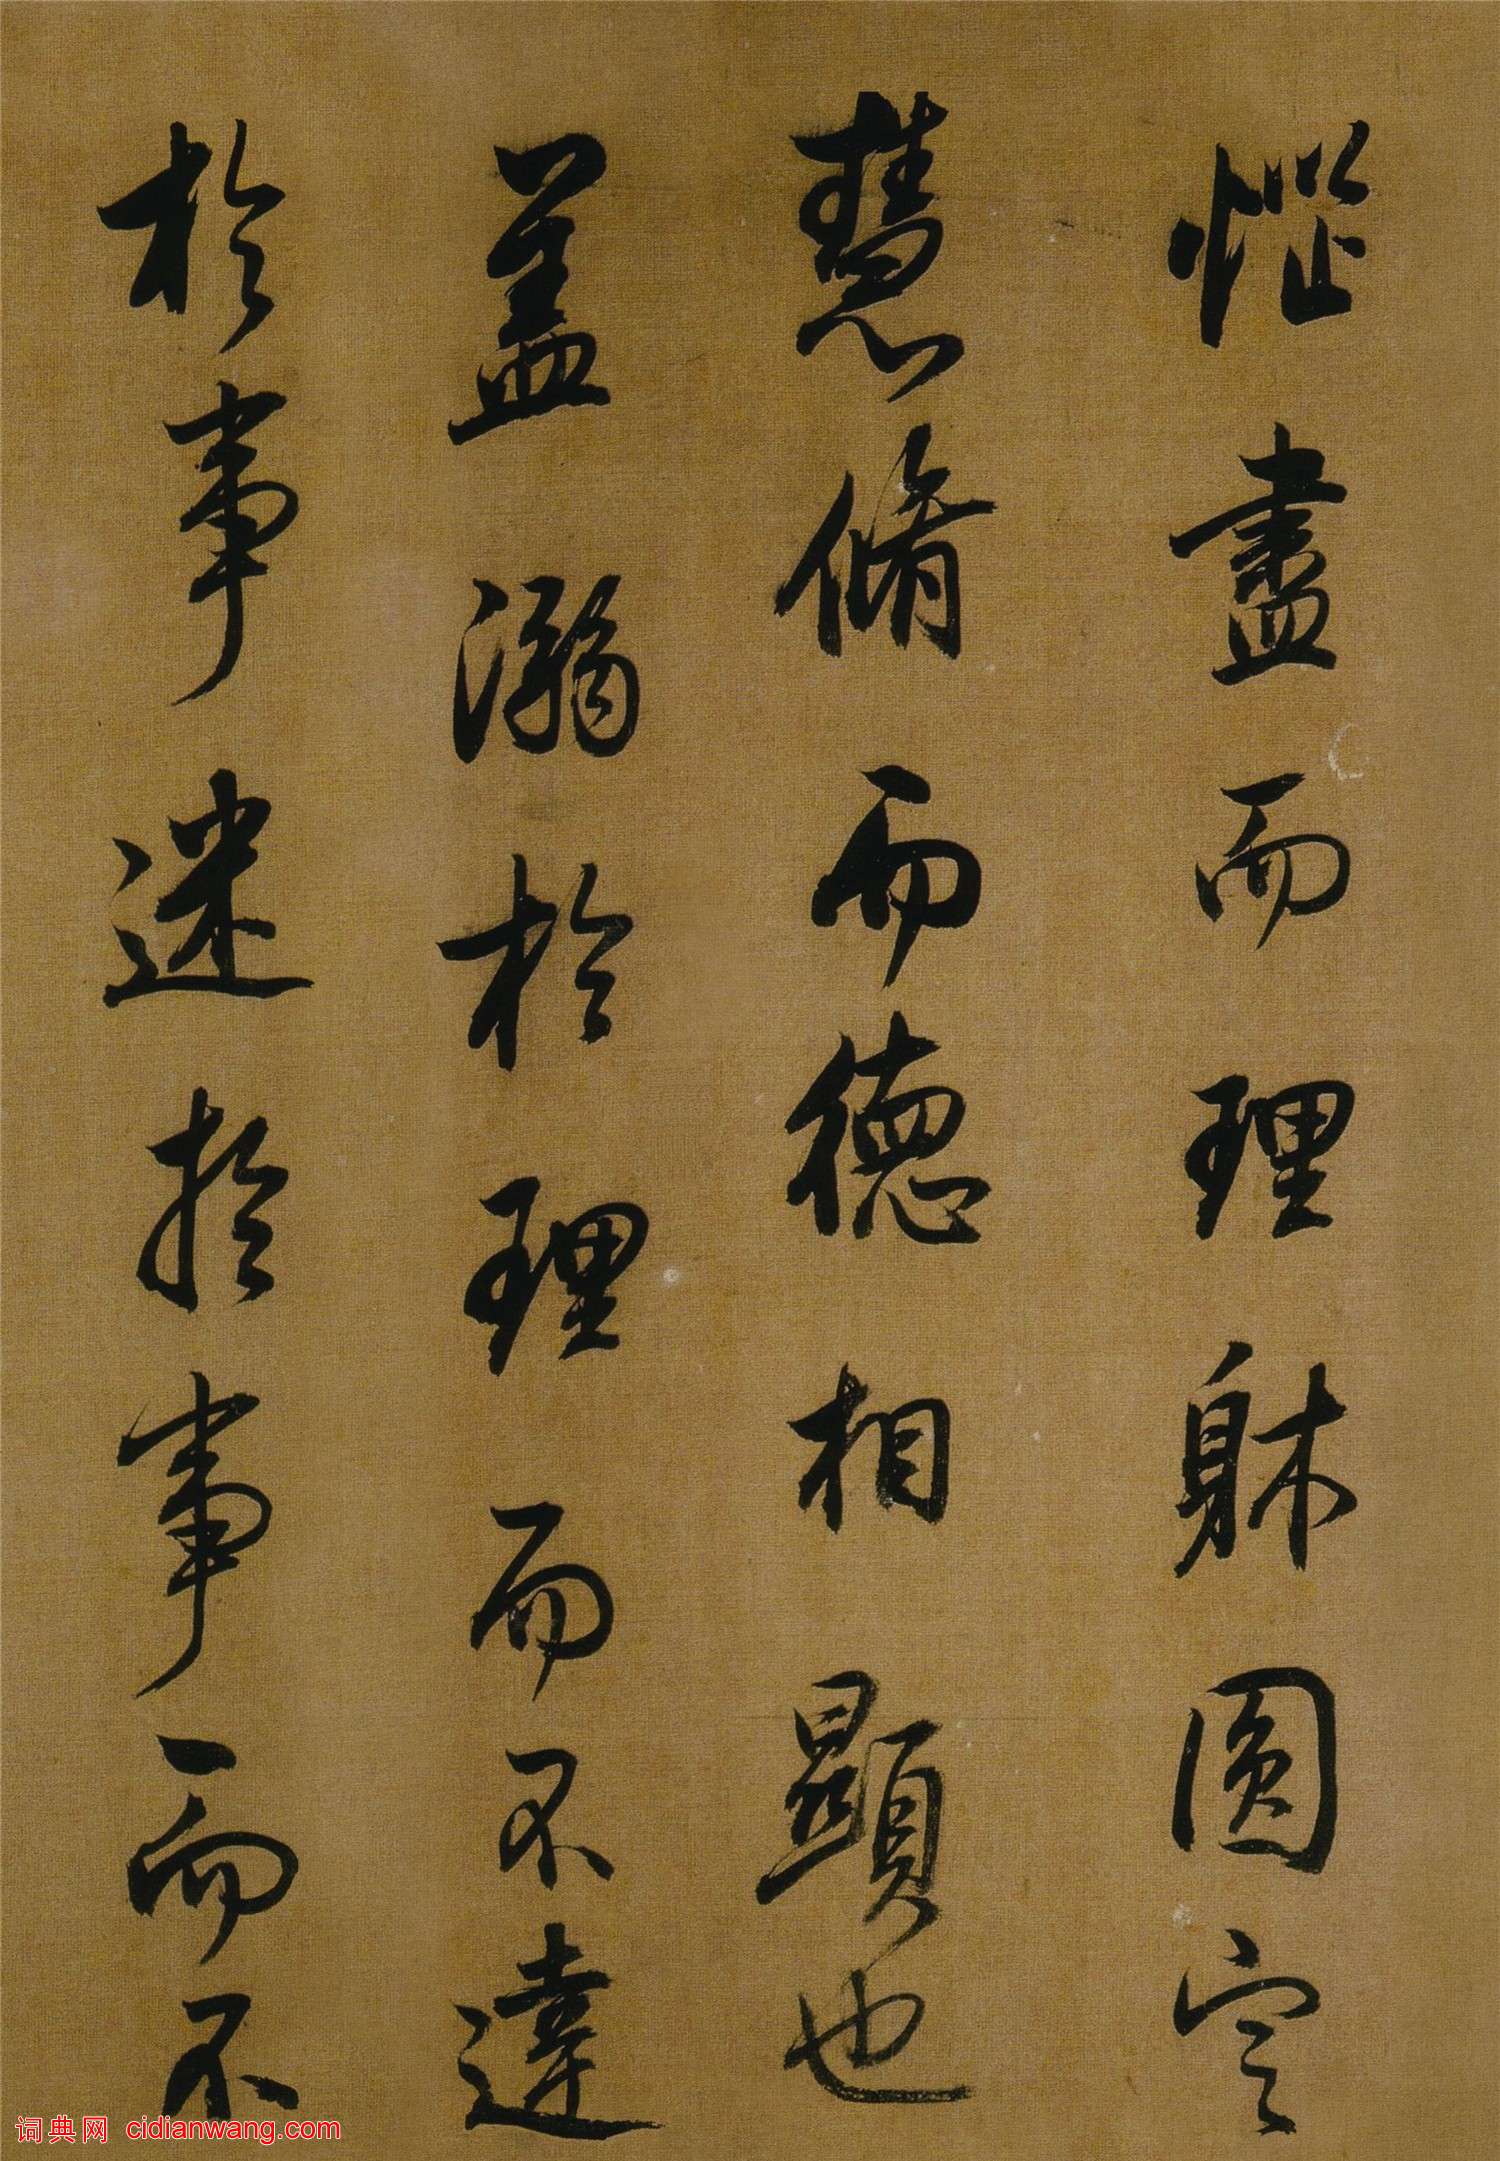 惱盡而理躰圓定
慧脩而德相顯也
蓋溺於理而不達
於事迷於事而不
词典网 cidianwang.com